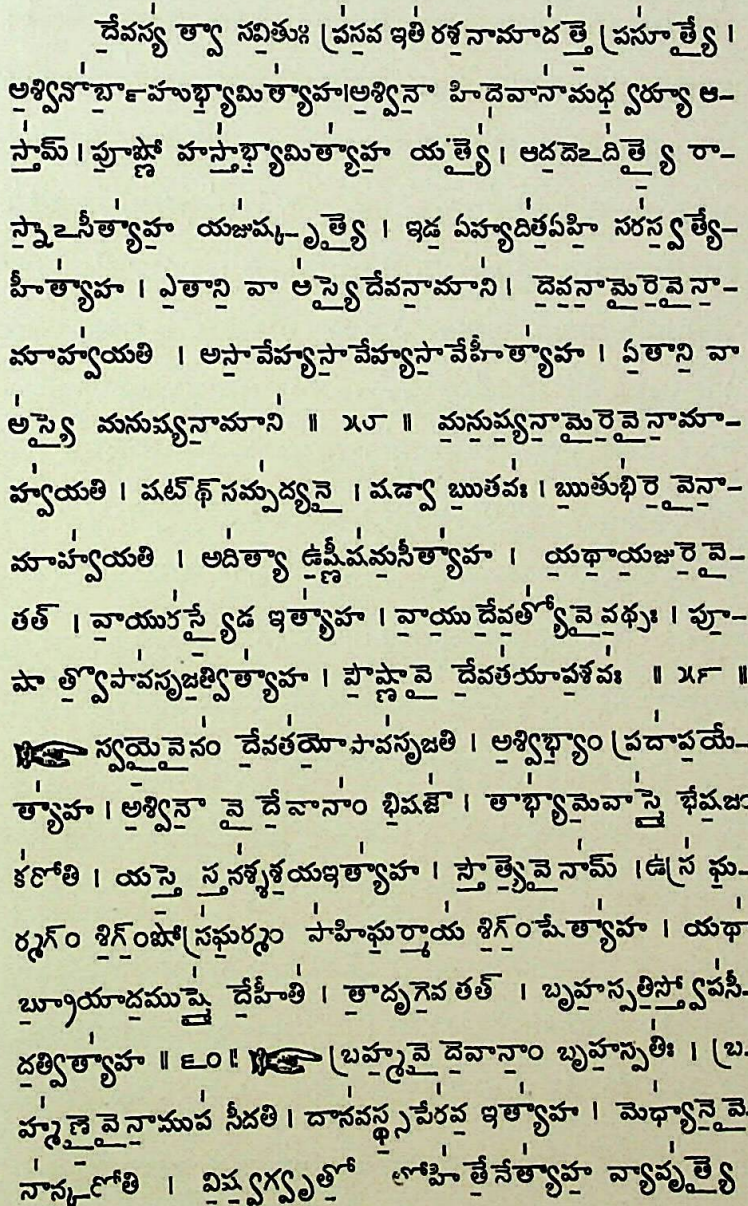 దేవస్య త్వా సవితుః ప్రసవ ఇతి రశనామాదత్తె ప్రసూత్యై ।
అశ్వినోర్బాహుభ్యామిత్యాహ।అశ్వినా హిదేవానామధ్వర్యూ ఆ-
స్తామ్ । పూష్ణో హస్తాభ్యామిత్యాహ యత్యై । ఆదదెఽదిత్యై రా-
స్నాఽసీత్యాహ యజుష్కృత్యై । ఇడ ఏహ్యదితఏహి సరస్వత్యే-
హీత్యాహ । ఎతాని వా అస్యైదేవనామాని । దెవనామైరెవైనా-
మాహ్వయతి । అసావేహ్యసావేహ్యసావేహీత్యాహ । ఏతాని వా
అస్యై మనుష్యనామాని ॥ ౫౮ ॥ మనుష్యనామైరెవైనామా-
హ్వయతి । షట్థ్సమ్పద్యనై । షడ్వా ఋతవః । ఋతుభిరెవైనా-
మాహ్వయతి । అదిత్యా ఉష్ణీషమసీత్యాహ । యథాయజురెవై-
తత్ । వాయురస్యైడ ఇత్యాహ । వాయుదేవత్యోవైవథ్సః । పూ-
షా త్వొపావసృజత్విత్యాహ । పౌష్ణావై దేవతయాపశవః ॥ ౫౯ ॥
స్వయైవైనం దేవతయోపావసృజతి । అశ్విభ్యాం ప్రదాపయే-
త్యాహ । అశ్వినా వై దేవానాం భిషజౌ । తాభ్యామెవాస్మై భేషజం
కరోతి । యస్తె స్తనశ్శశయఇత్యాహ । స్తౌత్యెవైనామ్ ।ఉస్ర ఘ-
ర్మగ్ం శిగ్ంషోస్రఘర్మం పాహిఘర్మాయ శిగ్ంషేత్యాహ । యథా
బ్రూయాదముష్మై దేహీతి । తాదృగెవ తత్ । బృహస్పతిస్త్వోపసీ-
దత్విత్యాహ ॥ ౬౦ ॥ బ్రహ్మవై దెవానాం బృహస్పతిః । బ్ర-
హ్మణైవైనాముప సీదతి । దానవస్థ్సపేరవ ఇత్యాహ । మెధ్యానెవై-
నాన్కరోతి । విష్వగ్వృతో లోహితేనేత్యాహ వ్యావృత్యై